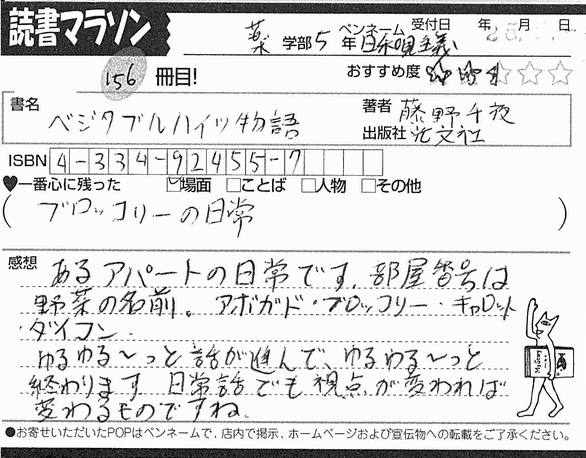 読書マラソン
薬 学部 5 年 ペンネーム 日和見主義 受付日 年 月 日
156 冊目! おすすめ度 ☆☆☆
書名 ベジタブルハイツ物語 著者 藤野千夜
出版社 光文社
ISBN 4-334-92455-7
♥一番心に残った ☑場面 □ことば □人物 □その他
(ブロッコリーの日常)
感想 あるアパートの日常です。部屋番号は
野菜の名前。アボガド・ブロッコリー・キャロット
・ダイコン。
ゆるゆる～っと話が進んで、ゆるゆる～っと
終わります。日常話でも視点が変われば
変わるものですね。
●お寄せいただいたPOPはペンネームで、店内で掲示、ホームページおよび宣伝物への転載をご了承ください。